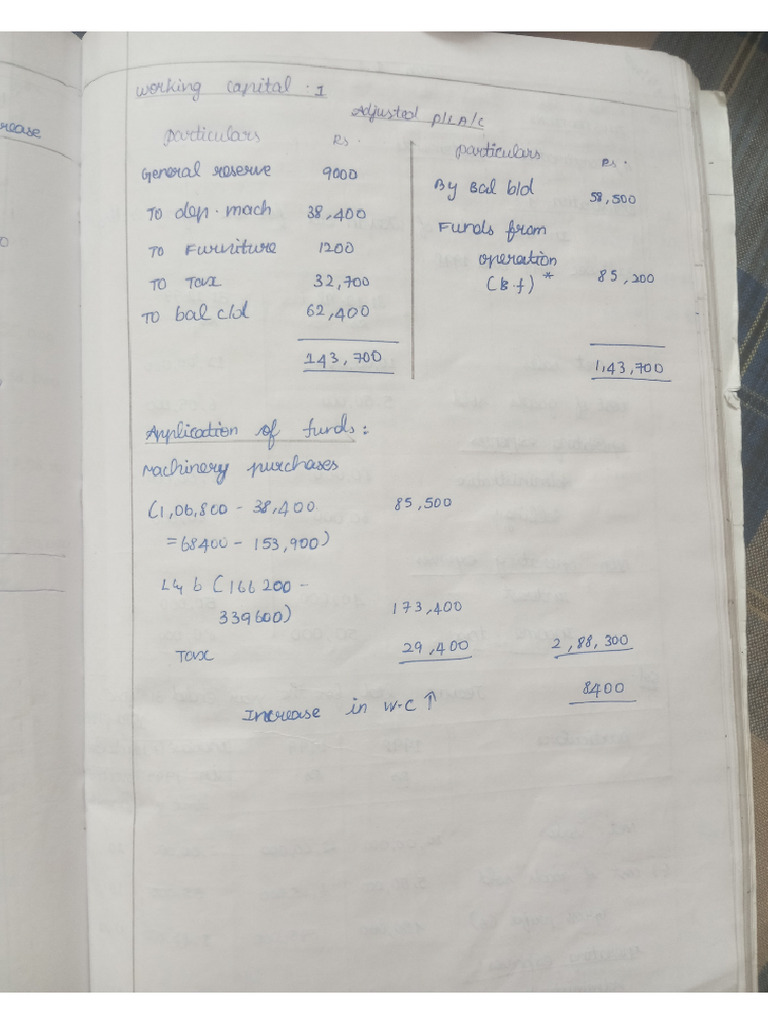 rease
0
Working capital - 1
Adjusted P/L A/C
particulars Rs.
General reserve 9000
To dep. mach 38,400
To Furniture 1200
To Tax 32,700
To bal c/d 62,400
143,700
particulars Rs.
By Bal b/d 58,500
Funds from
operation
(B.f) * 85,200
1,43,700
Application of funds:
Machinery purchases
(1,06,800 - 38,400 85,500
=68400 - 153,900)
L4 b (166200 -
339600) 173,400
Tax 29,400 2,88,300
Increase in W.C ↑ 8400